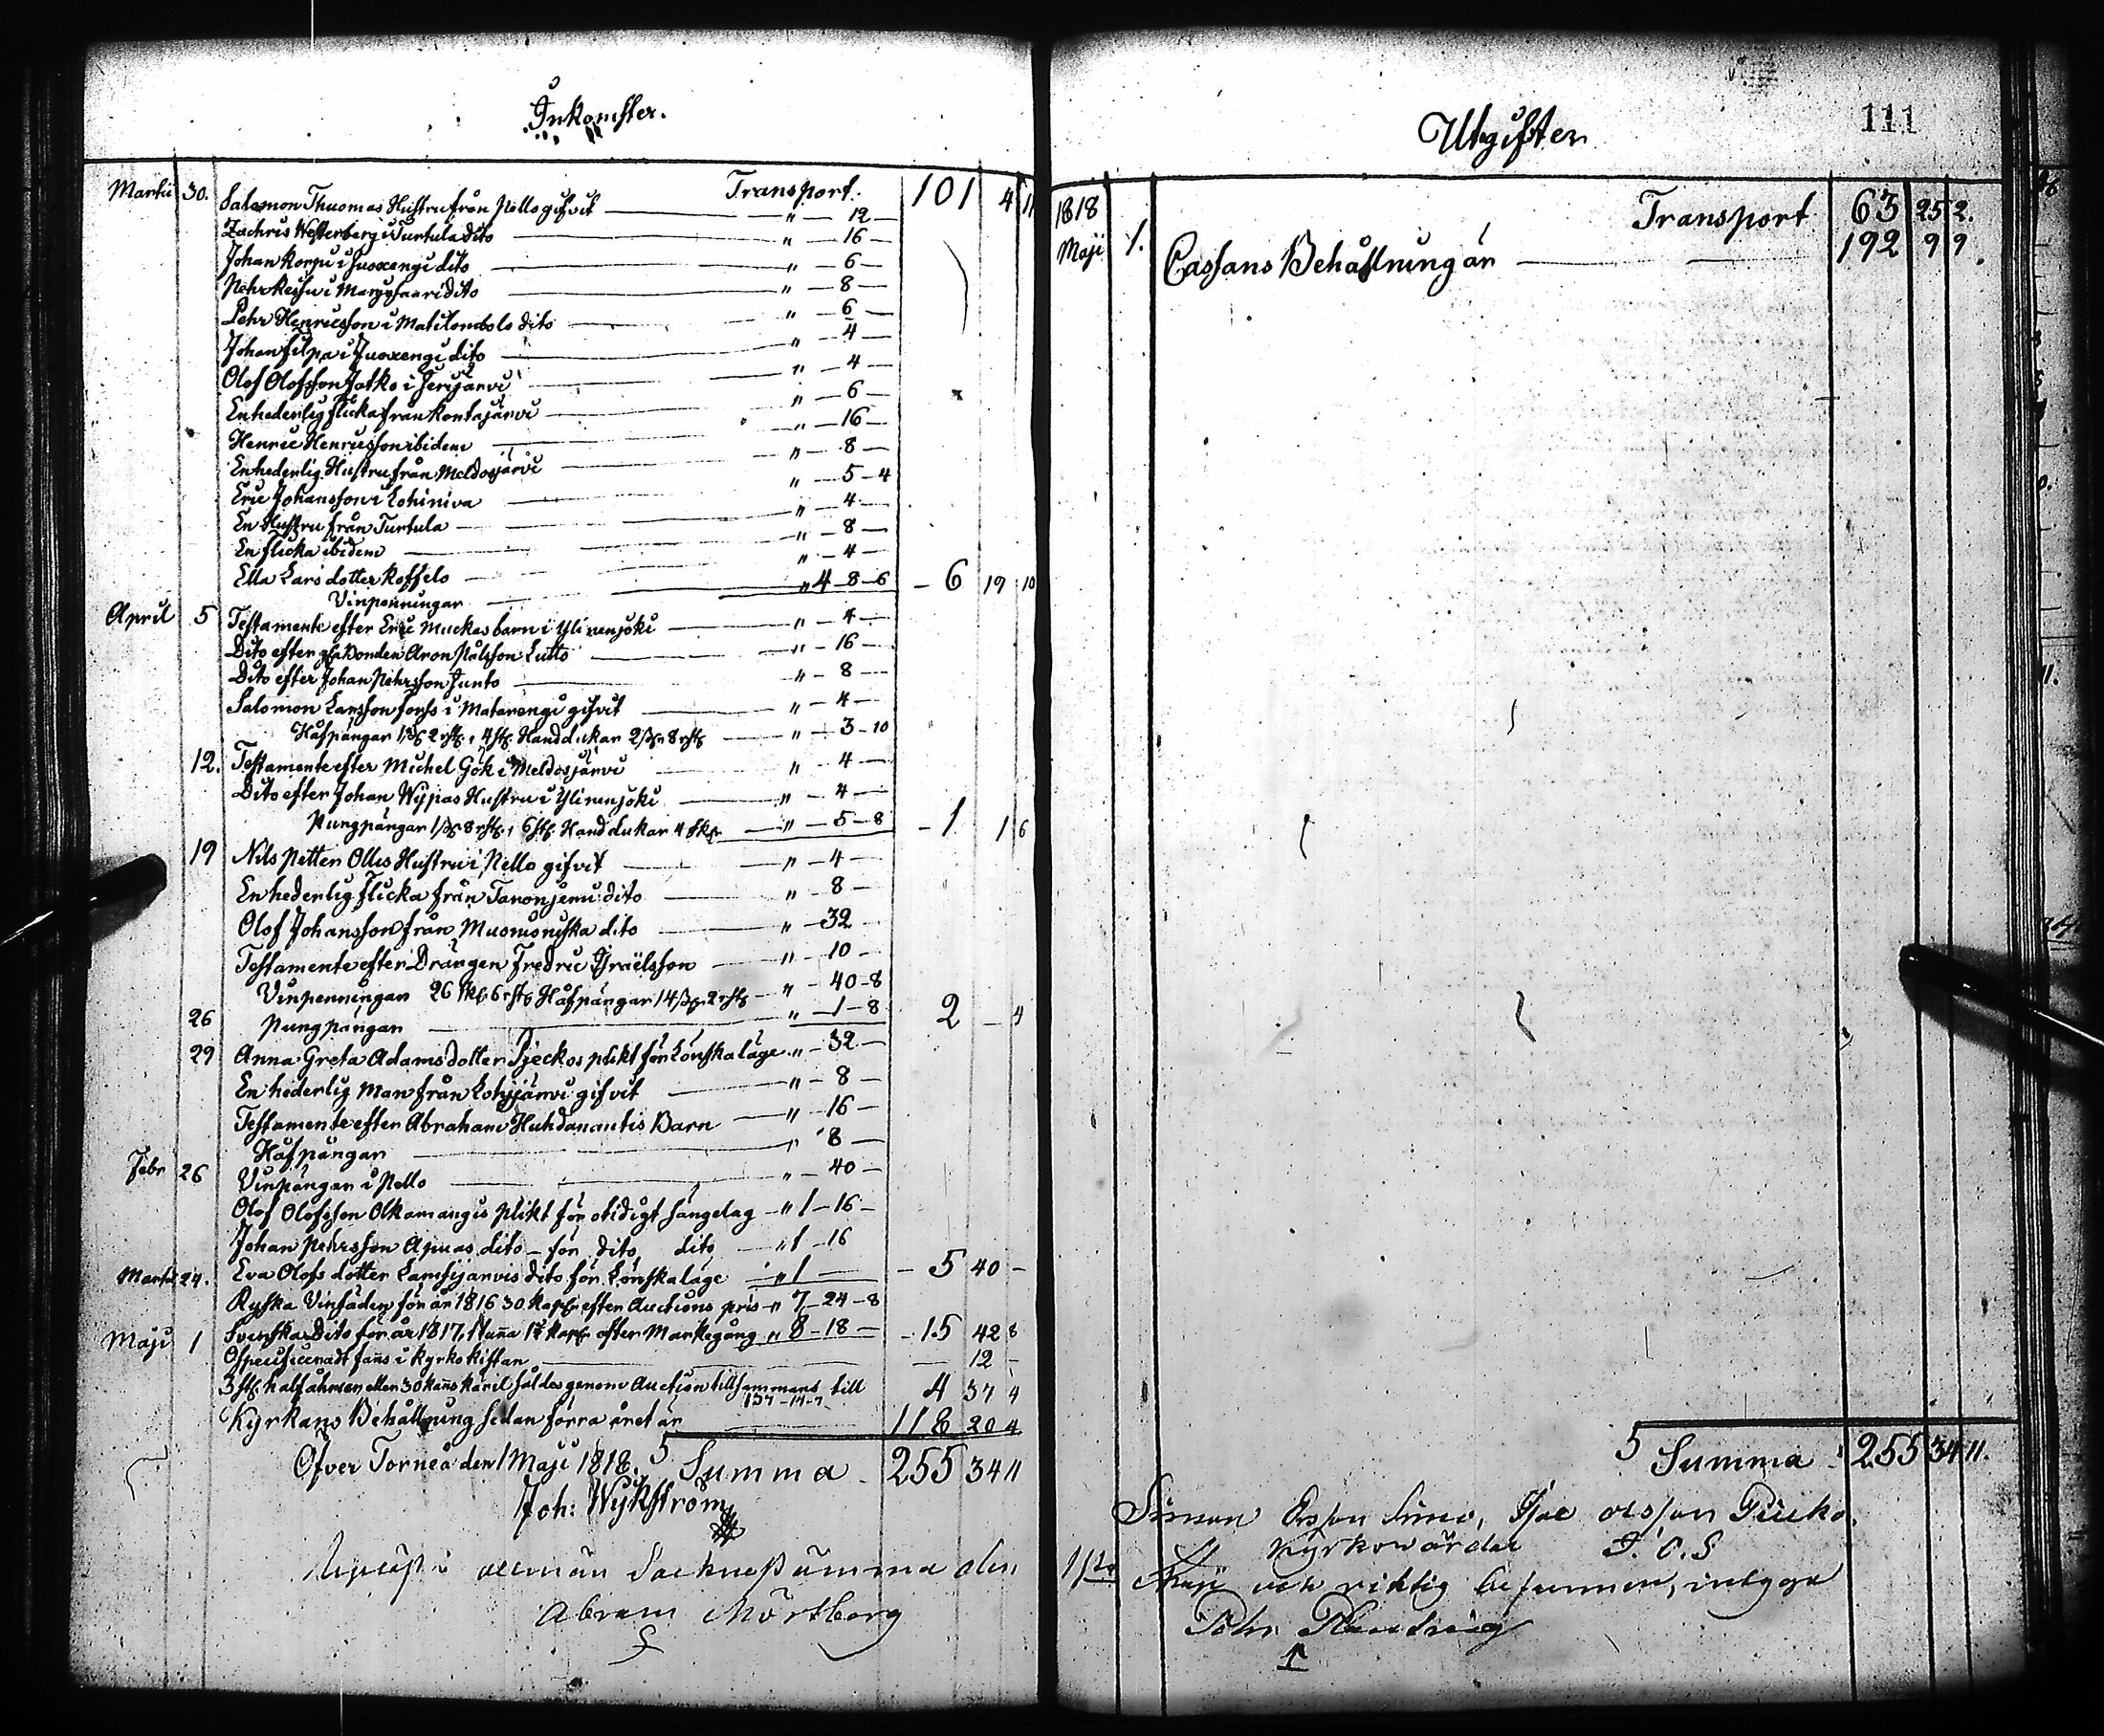 Inkomster.
Transport. 101 4 11
Martii 30. Salomon Thuomas Hustru från Pello gifvit " 12
Zachris Westerberg i Turtula dito " 16
Johan Korpi i Juoxengi dito " 6
Pehr Keisu i Marjosaari dito " 8
Pehr Henricsson i Matilombolo dito " 6
Johan Filpa i Juoxengi dito " 4
Olof Olofsson Jatko i Jerijärvi " 4
En hederlig flicka från Kontajärvi " 6
Henric Henricsson ibidem " 16
En hederlig Hustru från Meldosjärvi " 8
Eric Johansson i Lohiniva " 5 4
En Hustru från Turtula " 4
En flicka ibidem " 8
Ella Lars dotter Koffelo " 4
Vinpenningar " 4 8 6 6 19 10
April 5 Testamente efter Eric Muckas barn i Ylinenjoki " 4
Dito efter gla Bonden Aron Pålsson Lutto " 16
Dito efter Johan Pehrsson Junto " 8
Salomon Larsson Fonss i Matarengi gifvit " 4
Håfpängar 2 rst. 4 st. Handdukar 8 rst " 3 10
12. Testamente efter Michel Gök i Meldosjärvi " 4
Dito efter Johan Wypas Hustru i Ylinenjoki " 4
Pungpängar 8 rst. 6 st. Handdukar 4 sk " 5 8 1 1 6
19 Nils Petter Ollis Hustru i Pello gifvit " 4
En hederlig flicka från Tanonjemi dito " 8
Olof Johansson från Muoniouiska dito " 32
Testamente efter Drängen Fredric Israëlsson " 10
Vinpenningar 26 sk. 6 rst Håfpängar 14 2 rst " 40 8
26 Pungpängar " 1 8 2 4
29 Anna Greta Adams dotter Pjeckos plikt för Lönskaläge " 32
En hederlig Man från Lohijärvi gifvit " 8
Testamente efter Abraham Huhdanantis Barn " 16
Håfpängar " 8
Febr 26 Vinpängar i Pello " 40
Olof Olofsson Alkamangis Plikt för otidigt sängelag " 1 16
Johan Pehrsson Ajmas dito för dito dito " 1 16
Martii 24. Eva Olofs dotter Lamsijärvis dito för Lönskaläge " 1 5 40
Ryska Vinsäden för år 1816 30 Kappr efter Auctions pris " 7 24 8
Maji 1 Svenska Dito för år 1817, 1 tunna 1 kapp efter Markegång " 8 18 15 42 8
Ospecificeradt fans i Kyrko kistan 12
3 st. halfåhmen, eller 30 kanns käril såldes genom Auction tillsammans till 4 37 4
137 14 7
Kyrkans Behållning sedan förra året är 118 20 4
Öfver Torneå den 1 Maji 1818. Summa 255 34 11
Joh: Wykström
allmän Sockne Stämma den
Abram Mörtberg
111
Utgifter
1818 Transport 63 25 2.
Maji 1. Cassans Behållning är 192 9 9.
Summa 255 34 11.
Simon Ersson Simo, Isac Olsson
Kyrkowärdar I. O. S
Maji och riktig befunnen, intyga